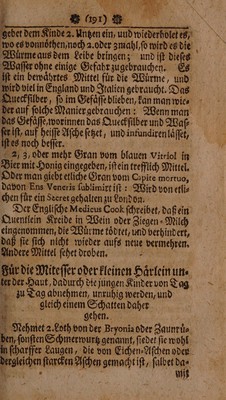 (191)
gebet dem Kinde 2. Untzen ein, und wiederholet es,
wo es vonnöthen, noch 2. oder 3 mahl, so wird es die
Würme aus dem Leibe bringen; und ist dieses
Wasser ohne einige Gefahr zugebrauchen. Es
ist ein bewährtes Mittel für die Würme, und
wird viel in England und Italien gebraucht. Das
Queckſilber, so im Gefässe blieben, kan man wie-
der auf solche Manier gebrauchen: Wenn man
das Gefässe, worinnen das Queckſilber und Waß-
ser ist, auf heisse Asche setzet, und infundiren lässet,
ist es noch besser.
2, 3, oder mehr Gran vom blauen Vitriol in
Bier mit Honig eingegeben, ist ein trefflich Mittel.
Oder man giebt etliche Gran vom Capite mortuo,
davon Ens Veneris sublimirt ist: Wird von etli-
chen für ein Secret gehalten zu London.
Der Englische Medicus Cook schreibet, daß ein
Quentlein Kreide in Wein oder Ziegen-Milch
eingenommen, die Würme tödtet, und verhindert,
daß sie sich nicht wieder aufs neue vermehren.
Andere Mittel sehet droben.
Für die Mitesser oder kleinen Härlein un-
ter der Haut, dadurch die jungen Kinder von Tag
zu Tag abnehmen, unruhig werden, und
gleich einem Schatten daher
gehen.
Nehmet 2. Loth von der Bryonia oder Zaunrü-
ben, sonsten Schmerwurtz genannt, siedet sie wohl
in scharffer Laugen, die von Eichen-Aschen oder
dergleichen starcken Aschen gemacht ist, salbet da-
mit